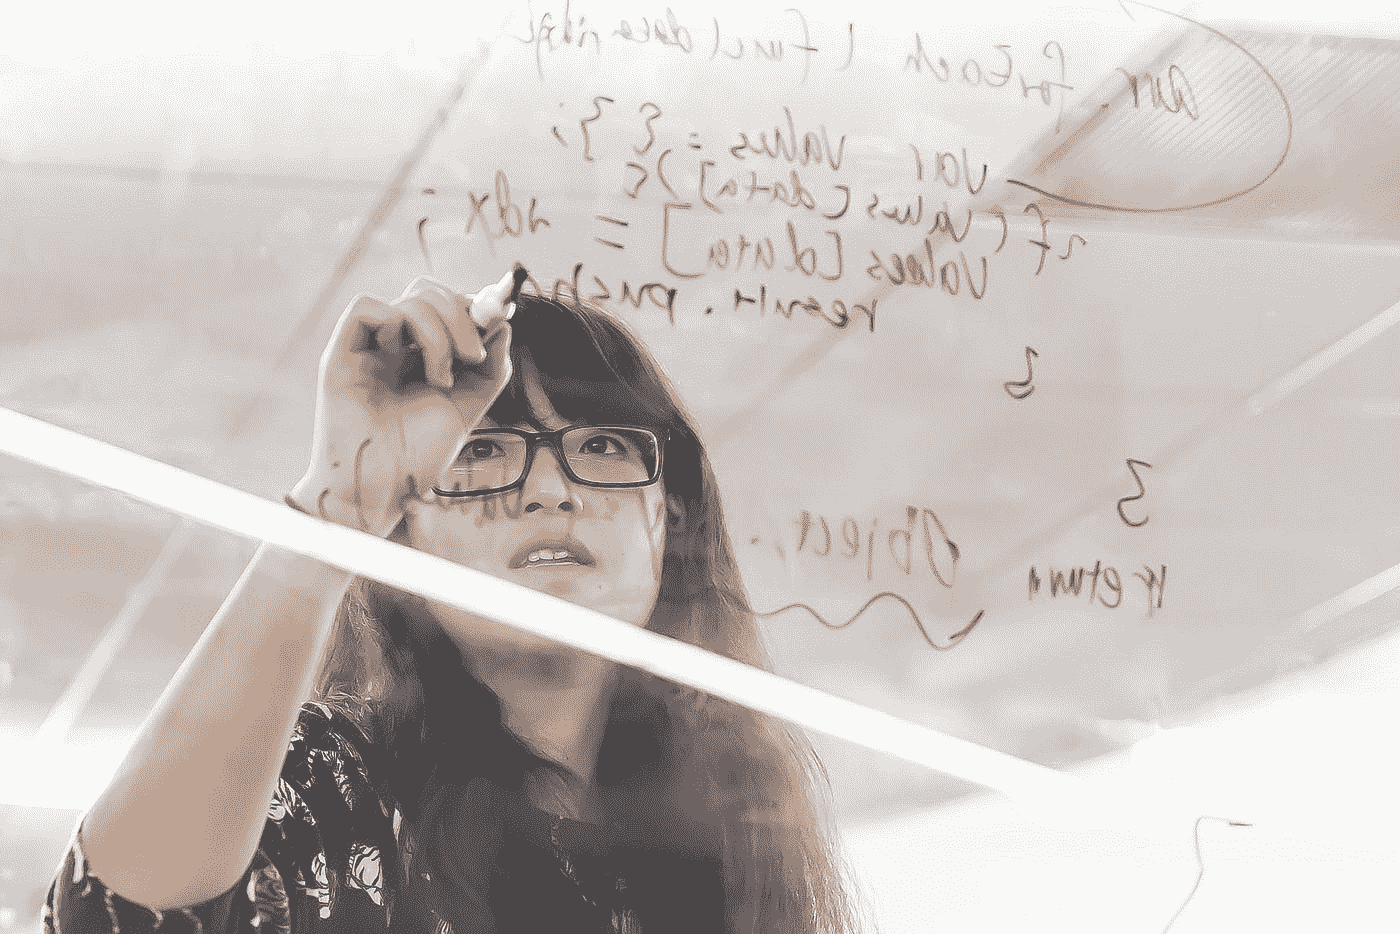 arr. forEach (func(data, idx)
var values = {};
if (values[data]){
values[data] = idx;
result.push(
}
}
return Object,.
value);